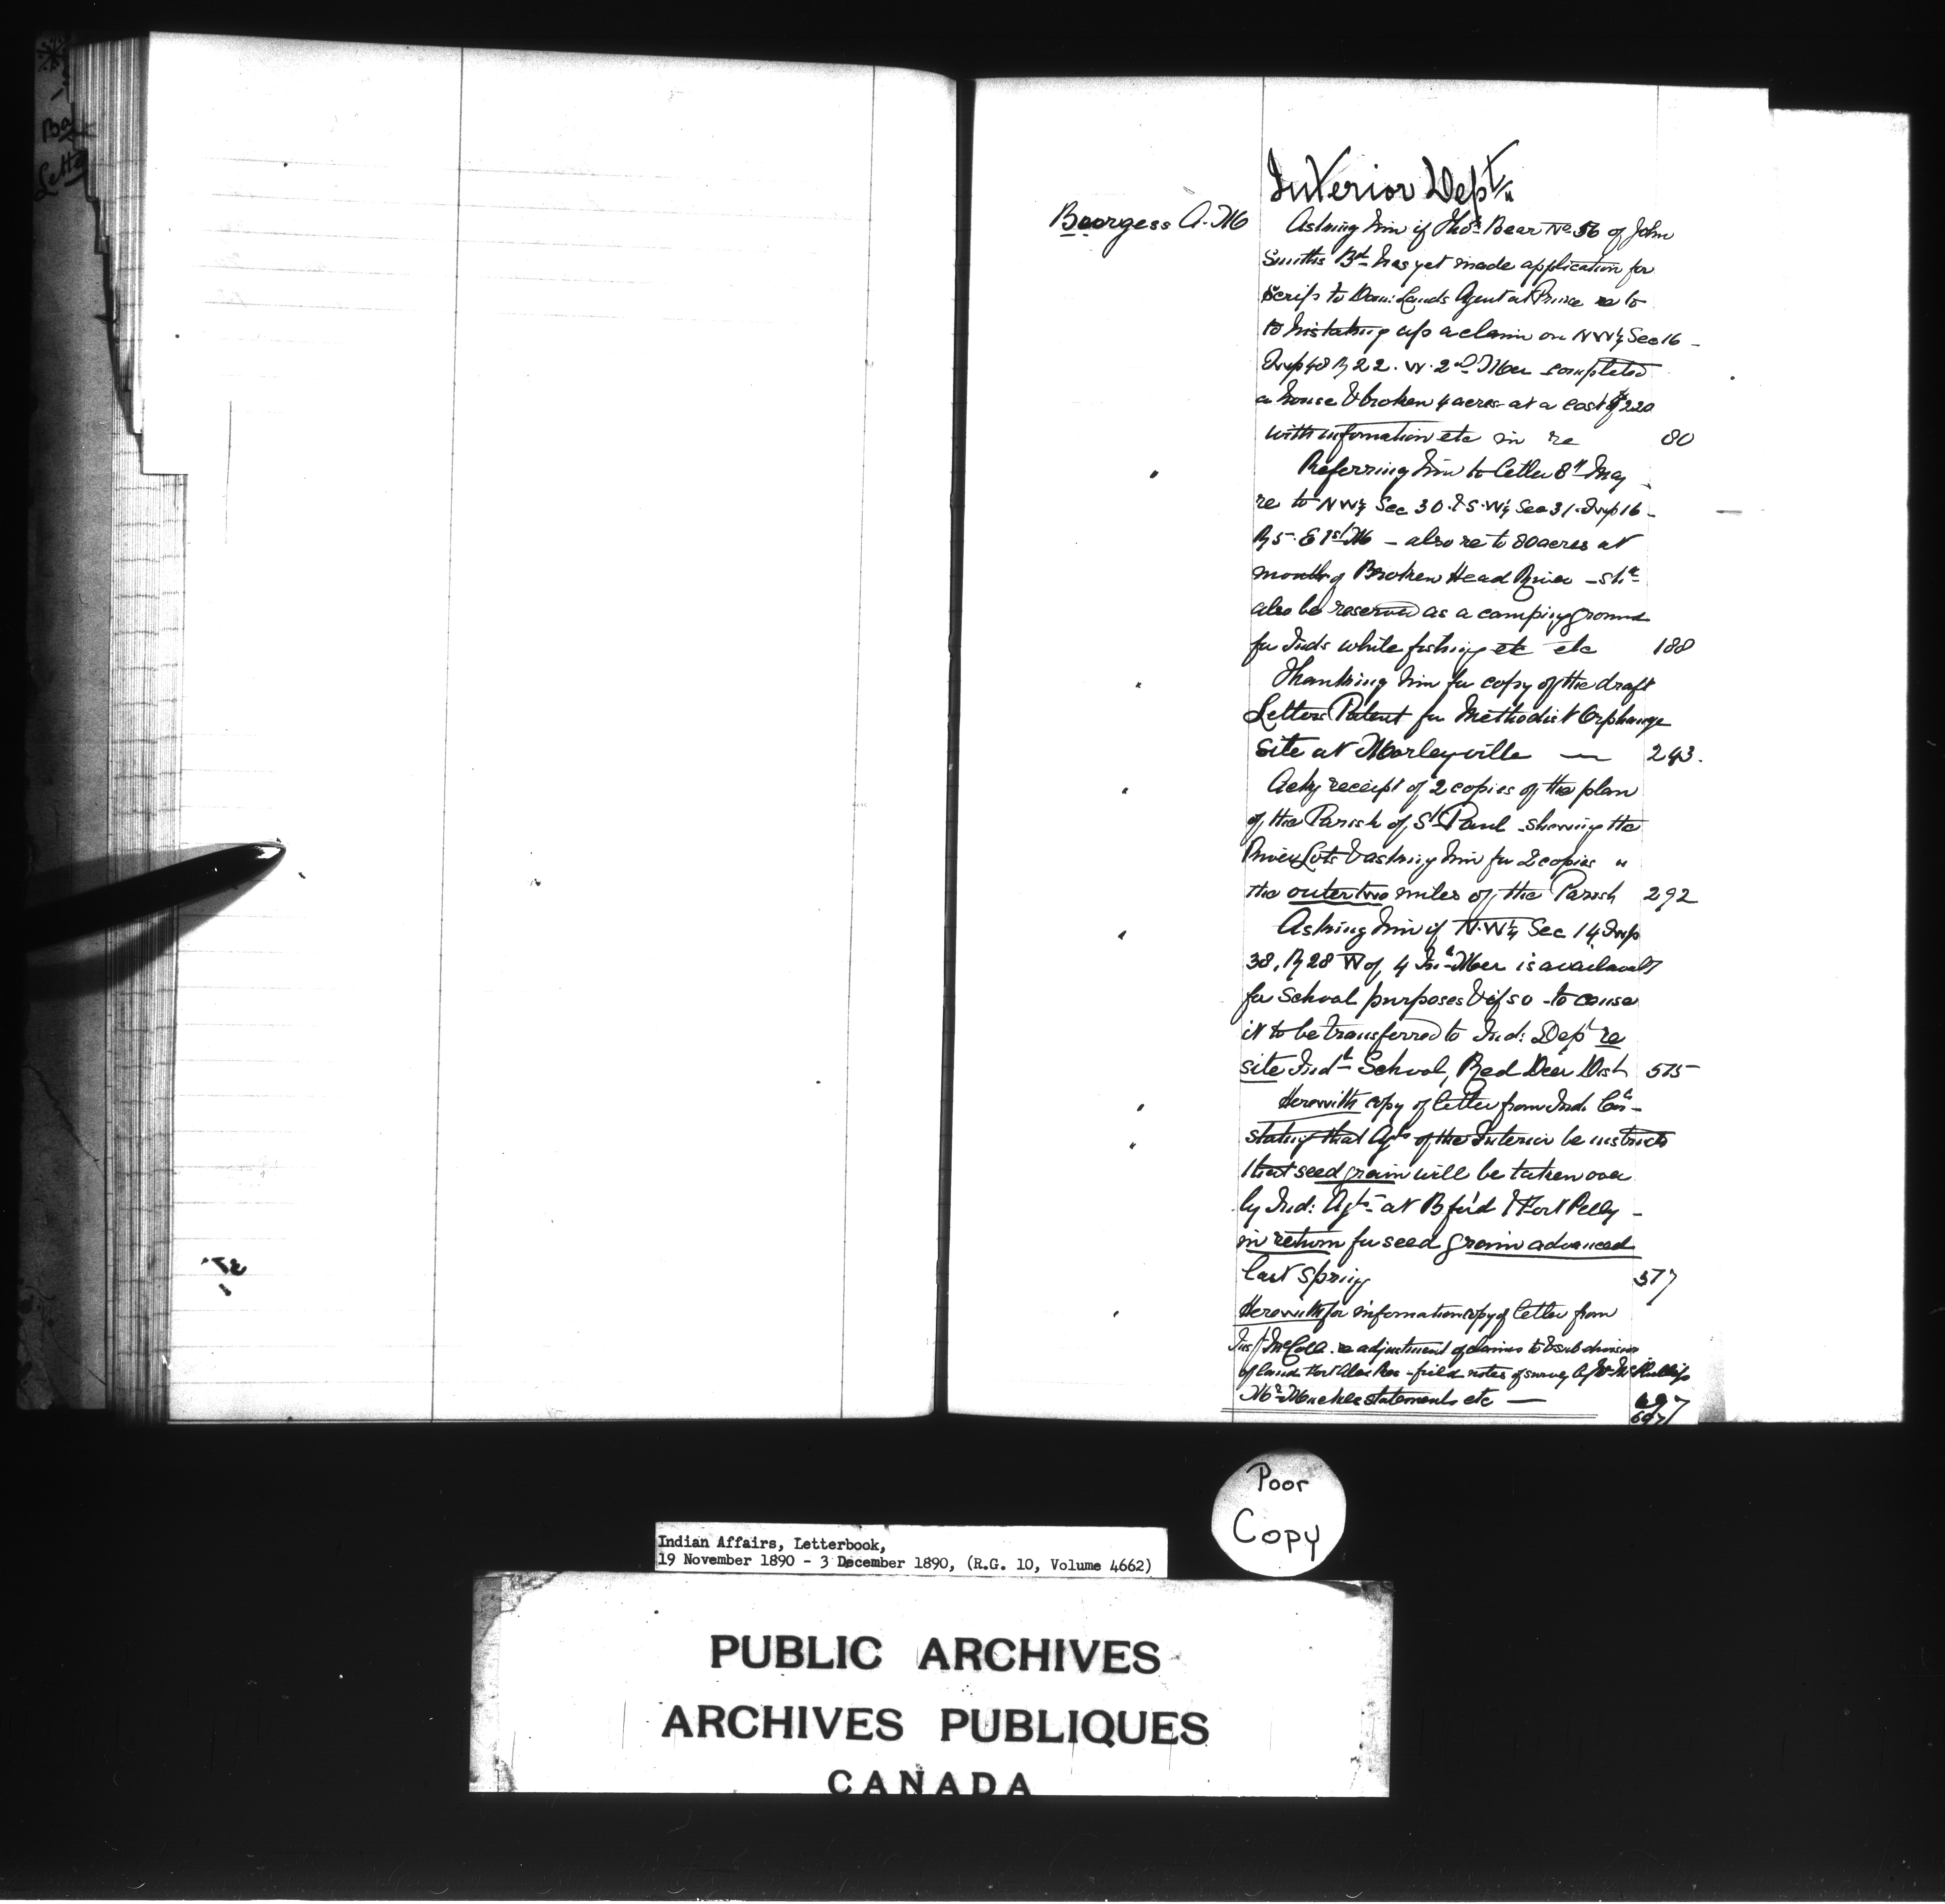 Ba
Letter
Interior Dept
Burgess A. M
Asking him if Thos. Bear No 56 of John
Smith's Bd has yet made application for
scrip to Dom: Lands Agent at Prince re to
to his taking up a claim on NW¼ Sec 16 -
Twp 48 R 22. W. 2nd Mer completed
a house & broken 4 acres at a cost $220
with infomation etc in re 80
" Referring him to letter 8th May
re to NW¼ Sec 30 & S.W¼ Sec 31. Twp 16 -
R 5. E 1st M - also re to 80 acres at
mouth of Broken Head River - shd
also be reserved as a camping ground
for Inds while fishing etc etc 188
" Thanking him for copy of the draft
Letters Patent for Methodist Orphanage
site at Morleyville — 243.
" Ackg receipt of 2 copies of the plan
of the Parish of St Paul showing the
River Lots & asking him for 2 copies "
the outer two miles of the Parish 292
" Asking him if N.W¼ Sec 14 Twp
38, R 28 W of 4 Mer is available
for school purposes & if so - to cause
it to be transferred to Ind: Dept re
site Indl School, Red Deer Dist 575
" Herewith copy of letter from Ind. Comr
" stating that Agts of the Interior be instructed
that seed grain will be taken over
by Ind: Agts at B ford & Fort Pelly -
in return for seed grain advanced
last spring 577
" Herewith for information copy of letter from
Insp McColl re adjustment of claims to & subdivision
of land Fort Alex Res - field notes of survey of Mr McPhillips
Mr Muckle statements etc — 697
697
Poor
Copy
Indian Affairs, Letterbook,
19 November 1890 - 3 December 1890, (R.G. 10, Volume 4662)
PUBLIC ARCHIVES
ARCHIVES PUBLIQUES
CANADA